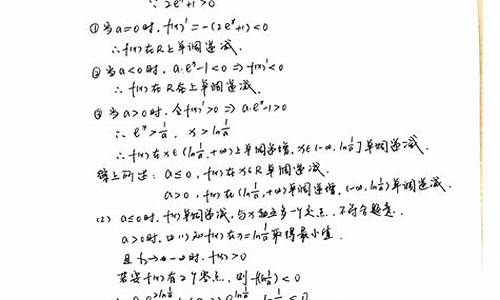 ∵ 2eˣ+1>0
① 当a=0时, f(x)'=-(2eˣ+1)<0
∴ f(x)在R上单调递减.
② 当a<0时, a·eˣ-1<0 ⇒ f(x)'<0
∴ f(x)在R上单调递减.
③ 当a>0时, 令f(x)'>0 ⇒ a·eˣ-1>0
∴ eˣ>1/a, x>ln1/a
∴ f(x)在x∈(ln1/a,+∞)上单调递增, x∈(-∞,ln1/a]单调递减.
综上所述: a≤0, f(x)在x∈R单调递减.
a>0, f(x)在(ln1/a,+∞)单调递增, (-∞,ln1/a)单调递减.
(2) a≤0时, f(x)单调递减, 与x轴至多一个交点, 不符合题意.
a>0时, 由(1)知f(x)在x=ln1/a取得最小值.
且 x→-∞时, f(x)>0
若要f(x)有2个零点, 则f(ln1/a)<0